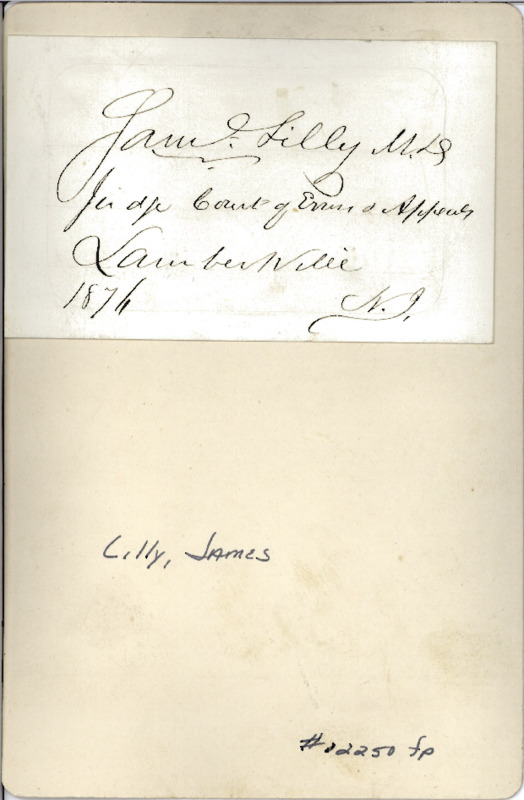 Saml. Lilly M.D.
Judge Court of Errors & Appeals
Lambertville
1876 N.J.
Lilly, James
#12250 fp